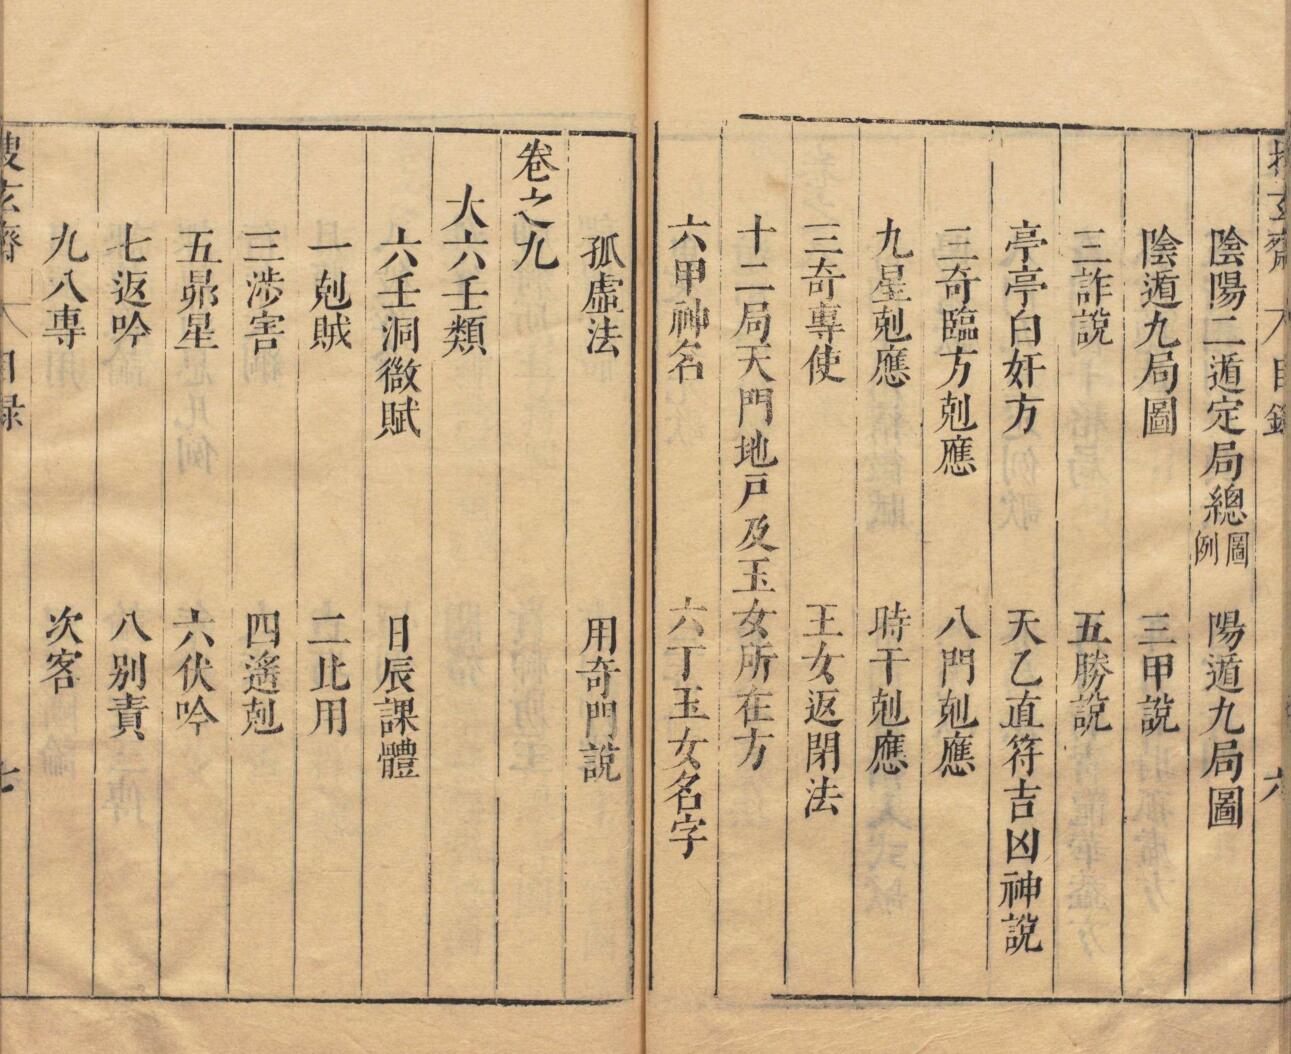 陰陽二遁定局總圖例　陽遁九局圖
陰遁九局圖　三甲說
三詐說　五勝說
亭亭白奸方　天乙直符吉凶神說
三奇臨方剋應　八門剋應
九星剋應　時干剋應
三奇專使　王女返閉法
十二局天門地戸及玉女所在方
六甲神名　六丁玉女名字
孤虛法　用奇門說
卷之九
大六壬類
六壬洞微賦　日辰課體
一剋賊　二比用
三涉害　四遙剋
五昴星　六伏吟
七返吟　八别責
九八専　次客
玄齋　目録　七